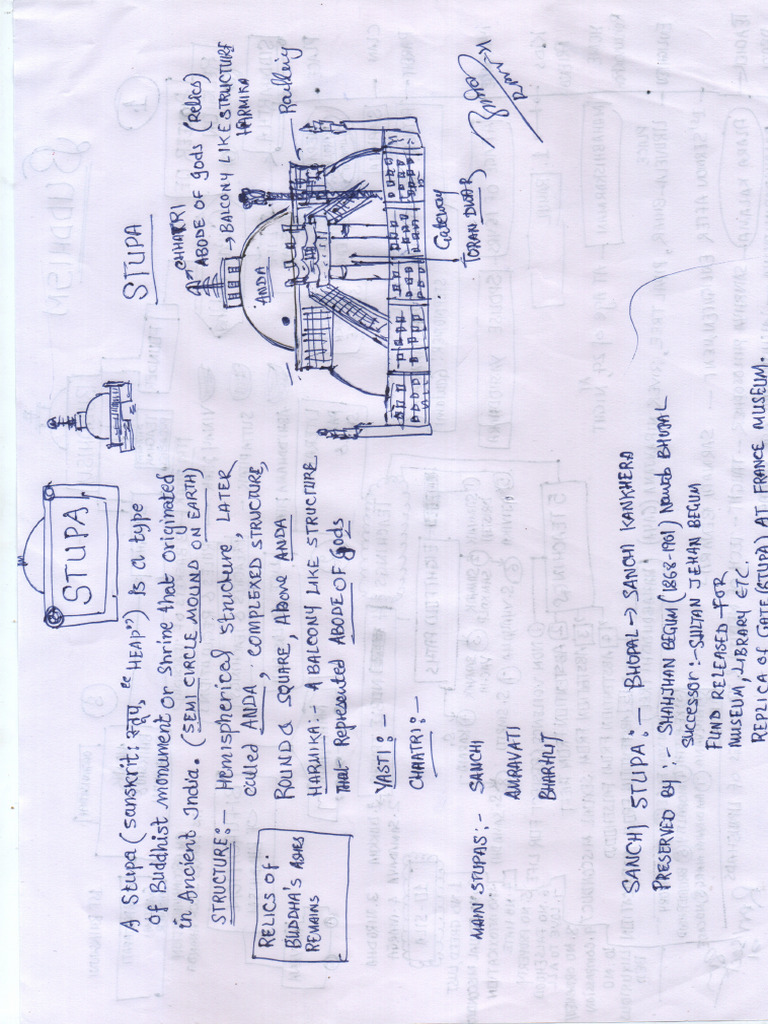 STUPA
A Stupa (sanskrit: स्तूप, "HEAP") is a type
of Buddhist monument or Shrine that originated
in Ancient India. (SEMI CIRCLE MOUND ON EARTH)
STRUCTURE:- Hemispherical structure, LATER
called ANDA, COMPLEXED STRUCTURE,
ROUND & SQUARE, Above ANDA
HARMIKA:- A BALCONY LIKE STRUCTURE
That Represented ABODE OF Gods
YASTI:-
CHAATRI:-
RELICS OF
BUDDHA'S ASHES
REMAINS
MAIN STUPAS:- SANCHI
AMRAVATI
BHARHUT
SANCHI STUPA:- BHOPAL → SANCHI KANKHERA
PRESERVED BY:- SHAHJHAN BEGUM (1868-1901) Nawab BHOPAL
SUCCESSOR:- SULTAN JEHAN BEGUM
FUND RELEASED FOR
MUSEUM, LIBRARY ETC.
REPLICA OF GATE (STUPA) AT FRANCE MUSEUM.
STUPA
CHHATRI
ABODE OF gods (Relics)
→ BALCONY LIKE STRUCTURE
HARMIKA
Railing
ANDA
Gateway
TORAN DWAR